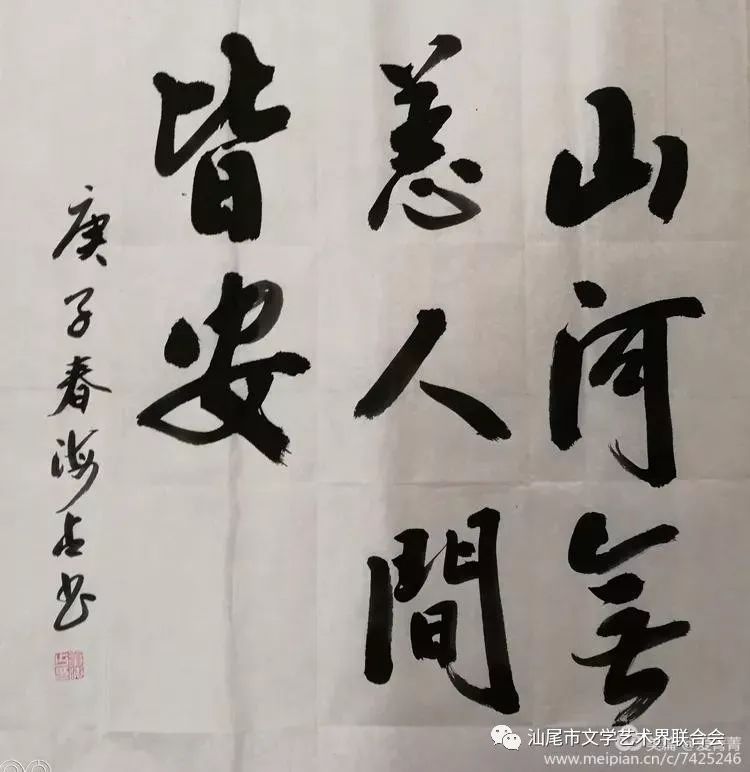 山河無
恙人間
皆安
庚子春海书
汕尾市文学艺术界联合会
www.meipian.cn/c/7425246